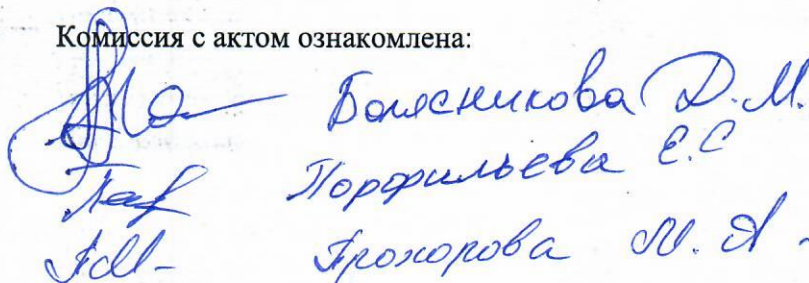 Комиссия с актом ознакомлена:
Болясникова Д.М.
Порфильева Е.С
Прохорова М.А.